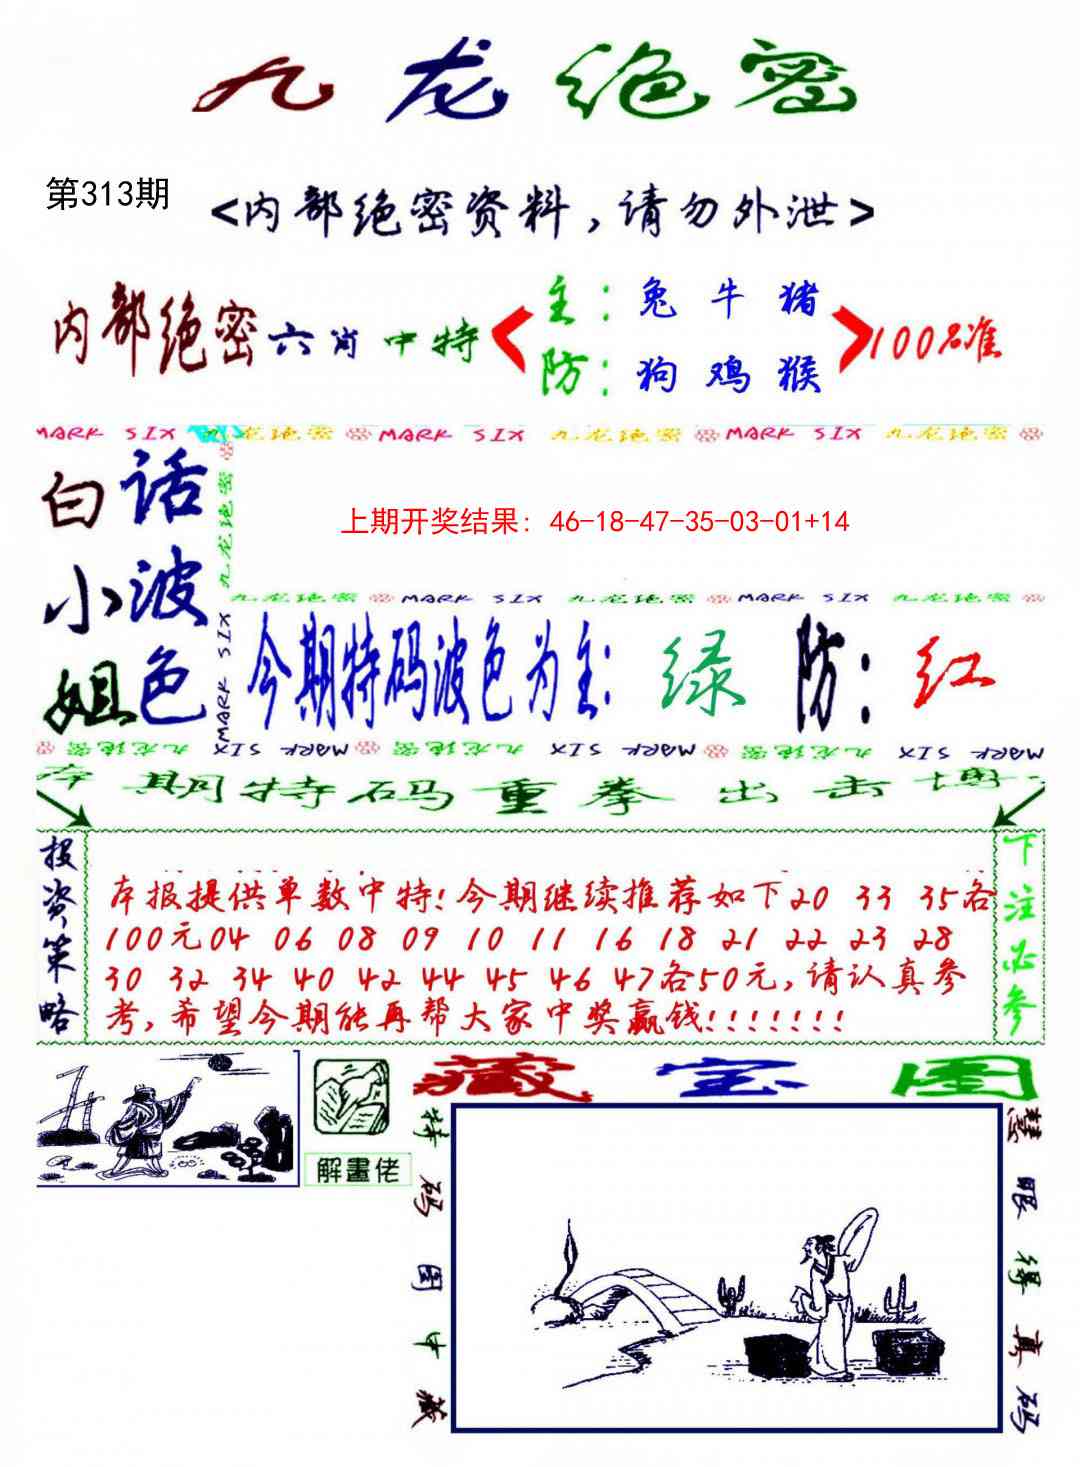 九龙绝密
第313期
<内部绝密资料，请勿外泄>
内部绝密六肖中特
主：兔 牛 猪
防：狗 鸡 猴
100%准
MARK SIX 九龙绝密 MARK SIX 九龙绝密 MARK SIX 九龙绝密
白话小波姐色
九龙绝密
MARK SIX
上期开奖结果：46-18-47-35-03-01+14
九龙绝密 MARK SIX 九龙绝密 MARK SIX 九龙绝密
今期特码波色为主：绿 防：红
九龙绝密 MARK SIX 九龙绝密 MARK SIX 九龙绝密 MARK SIX
本期特码重拳出击博
投资策略
本报提供单数中特!今期继续推荐如下20 33 35各
100元04 06 08 09 10 11 16 18 21 22 23 28
30 32 34 40 42 44 45 46 47各50元,请认真参
考,希望今期能再帮大家中奖赢钱!!!!!!!
下注必参
藏宝图
解畫佬
特码图中藏
慧眼得真码